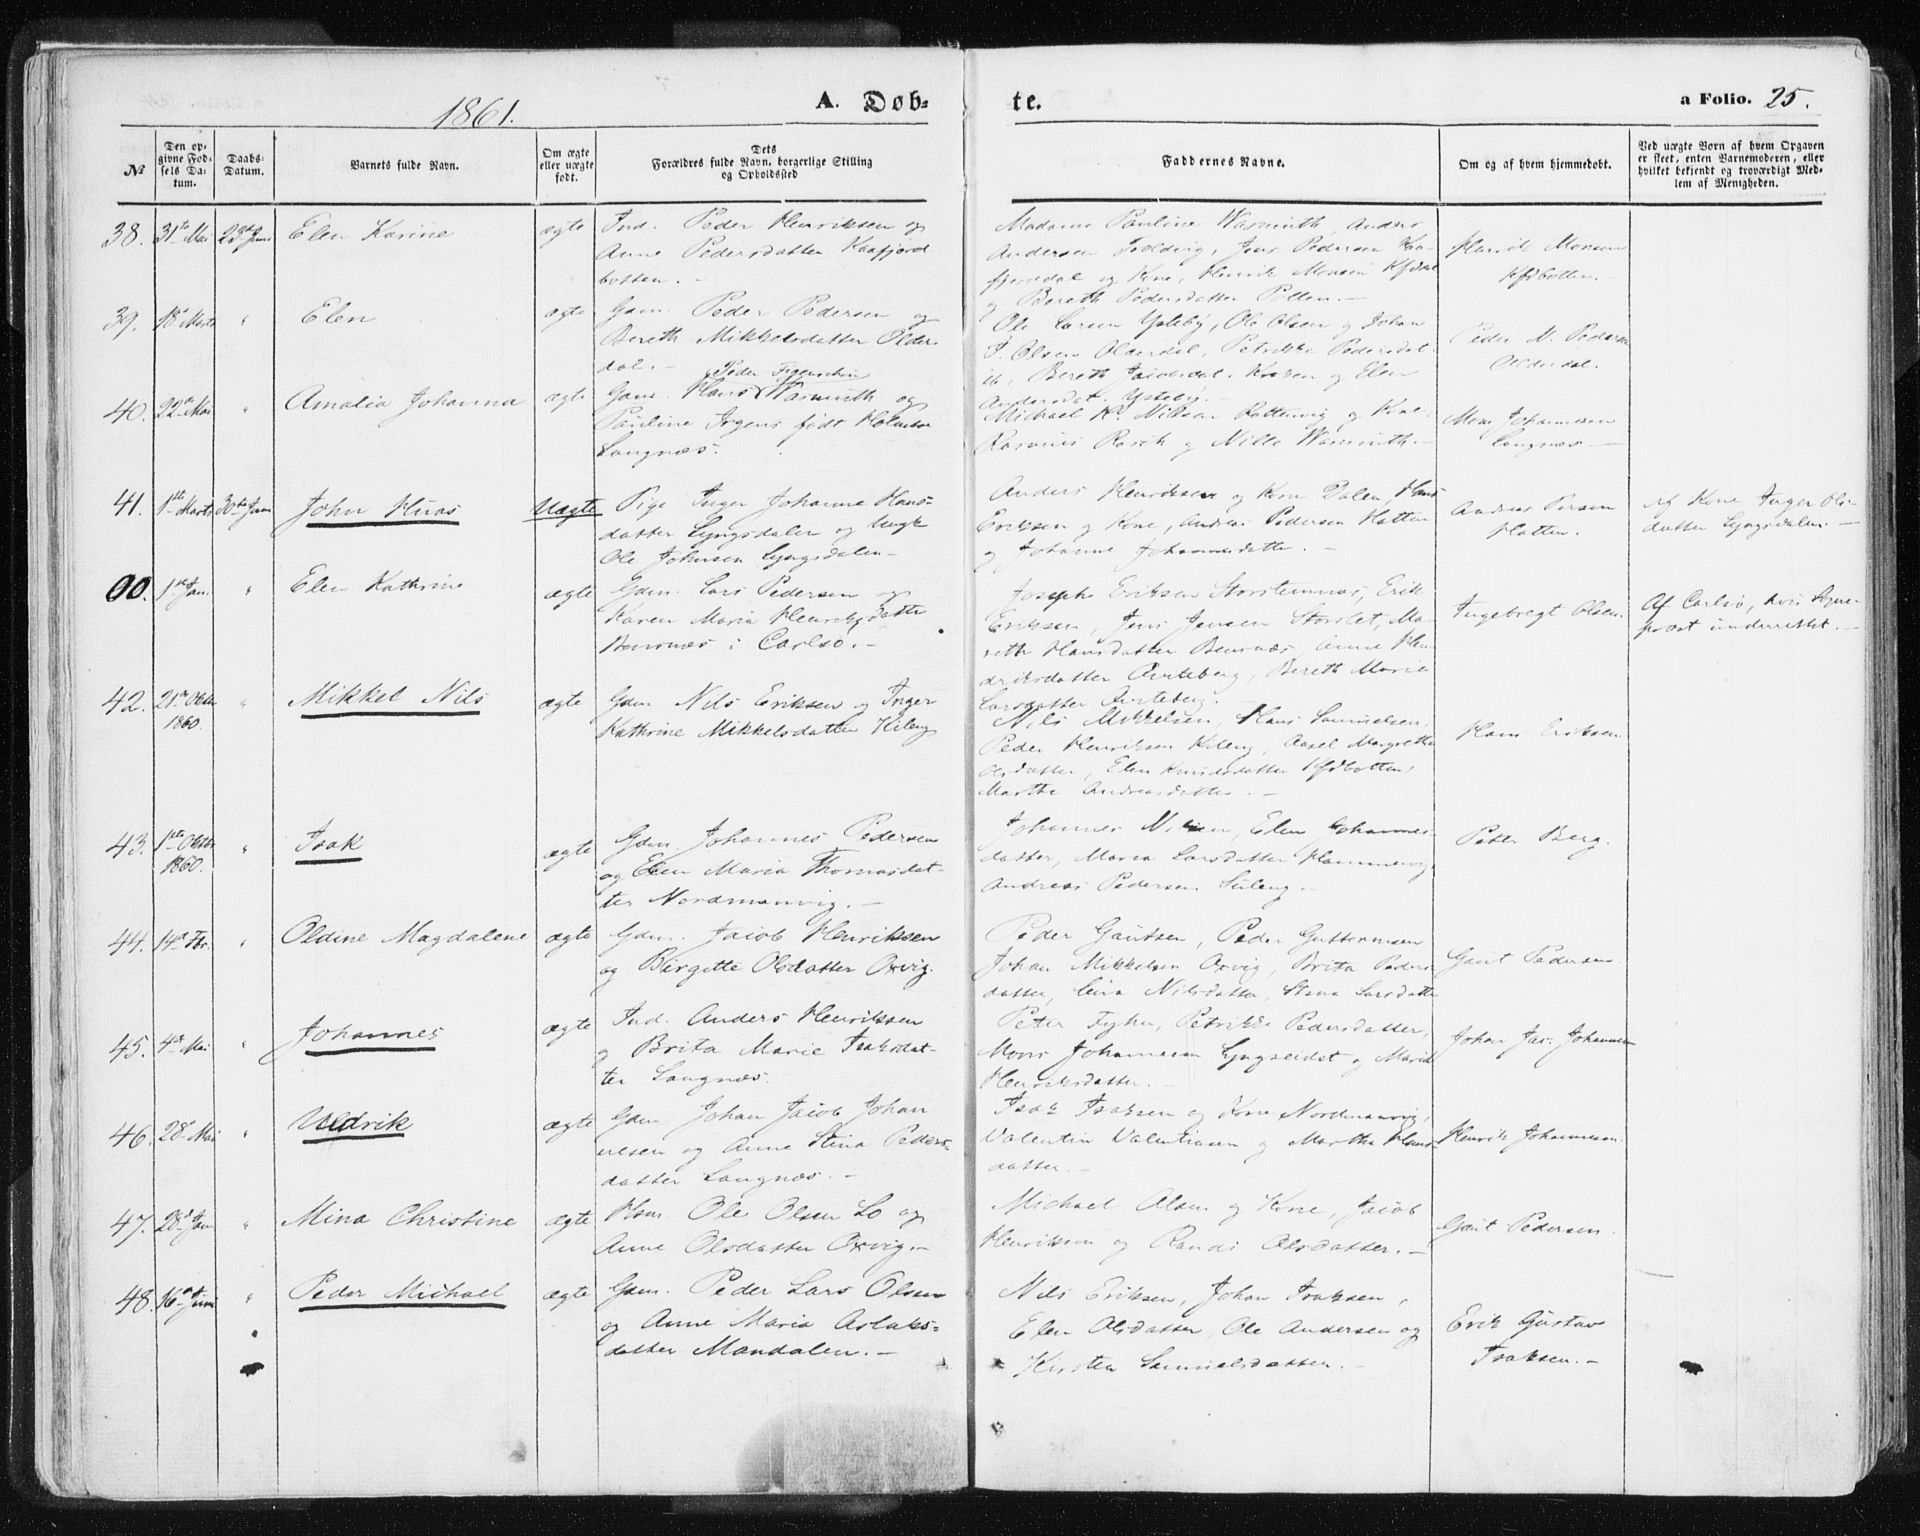 1861. A. Døb- te. a Folio. 25.
№
Den op-
givne Fød-
sels Da-
tum.
Daabs-
Datum.
Barnets fulde Navn.
Om ægte
eller uægte
født.
Dets
Forældres fulde Navn, borgerlige Stilling
og Opholdssted
Faddernes Navne.
Om og af hvem hjemmedøbt.
Ved uægte Børn af hvem Opgaven
er skeet, enten Barnemoderen, eller
hvilket bekjendt og troværdigt Med-
lem af Menigheden.
38. 31te Mai 23de Juni Elen Karine ægte
Ind. Peder Henriksen og
Anne Pedersdatter Kaafjord
botten. -
Madame Pauline Warmuth, Anders
Andersen Joldvig, Jens Pedersen Kaa-
fjorddal og Kone, Henrik Monsen Kfjdal
og Bereth Pedersdatter Pollen. -
Henrik Monsen
Kfjdbotten. -
39. 18de Marts " Elen ægte
Gam. Peder Pedersen og
Bereth Mikkelsdatter Older-
dal. -
Ole Larsen Ysteby, Ole Olsen og Johan
J. Olsen Olderdal, Petrikke Pedersdat-
ter, Bereth Jacobsdat. og Elen
Andersdat. Ysteby. -
Peder N. Pedersen
Olderdal.
40. 22de Mai " Amalia Johanna ægte
Peder Figenschou
Gam. Hans Warmuth og
Pauline Irgens født Holmboe
Langnæs.
Michael K. Nilsen Rottenvig og Kone,
Rasmus Rasch og Nille Warmuth. -
Mons Johannesen
Langnæs -
41. 1ste Marts 30te Juni John Huas Uægte
Pige Inger Johanne Hans-
datter Lyngsdalen og Ungk
Ole Johnsen Lyngsdalen -
Anders Henriksen og Kone Dalen, Hans
Eriksen og Kone, Andreas Pedersen Hatten
og Johanne Johannesdatter. -
Andreas Persen
Hatten.
Af Kone Inger Ols-
datter Lyngsdalen. -
00. 1ste Jan. " Elen Kathrine ægte
Gdm. Lars Pedersen og
Karen Maria Henriksdatter
Bensnæs i Carlsø. -
Joseph Eriksen Storstennæs, Erik
Eriksen, Jens Jensen Storslet, Ma-
reth Hansdatter Bensnæs, Anne Hen-
driksdatter Arteberg, Bereth Maria
Larsdatter Arteberg.
Ingebregt Olsen.
Af Carlsø, hvis Sogne-
præst underrettet. -
42. 21de Oktbr 1860. " Mikkel Nils ægte
Gdm Nils Eriksen og Inger
Kathrine Mikkelsdatter Kileng
Nils Mikkelsen, Hans Samuelsen,
Peder Henriksen Kileng, Axel Margrethe
Olsdatter, Elen Knudsdatter Kfjdbotten,
Marthe Andreasdatter. -
Hans Eriksen
43. 1ste Oktbr 1860. " Isak ægte
Gdm. Johannes Pedersen
og Elen Maria Thomasdat-
ter Nordmanvig. -
Johannes Nilsen, Elen Johannes-
datter, Maria Larsdatter Hammervig,
Andreas Pedersen Suleng. -
Peter Berg.
44. 14de Fbr. " Oldine Magdalene ægte
Gdm. Jacob Henriksen
og Birgitte Olsdatter Oxvig.
Peder Gautsen, Peder Guttormsen
Johan Mikkelsen Oxvig, Brita Peders-
datter, Nilsdatter, Stina Larsdatter
Gaut Pedersen.
45. 4de Mai " Johannes ægte
Ind. Anders Henriksen
og Brita Marie Isaksdat-
ter Langnæs.
Peter Fyhn, Petrikke Pedersdatter,
Mons Johannesen Lyngseidet og Maria
Henriksdatter. -
Johan Jac. Johannesen
46. 28de Mai " Uldrik ægte
Gdm. Johan Jacob Johan
nesen og Anne Stina Peders-
datter Langnæs. -
Isak Isaksen og Kone Nordmanvig,
Valentin Valentinsen og Martha Hans-
datter. -
Henrik Johannesen.
47. 28de Jan " Mina Christine ægte
Hsm. Ole Olsen Lo og
Anne Olsdatter Oxvig. -
Michael Olsen og Kone, Jacob
Henriksen og Randi Olsdatter. -
Gaut Pedersen.
48. 16de Juni " Peder Michael ægte
Gdm. Peder Lars Olsen
og Anne Maria Aslaks-
datter Mandalen. -
Nils Eriksen, Johan Isaksen,
Elen Olsdatter, Ole Andersen og
Kirsten Samuelsdatter. -
Erik Gustav
Isaksen. -